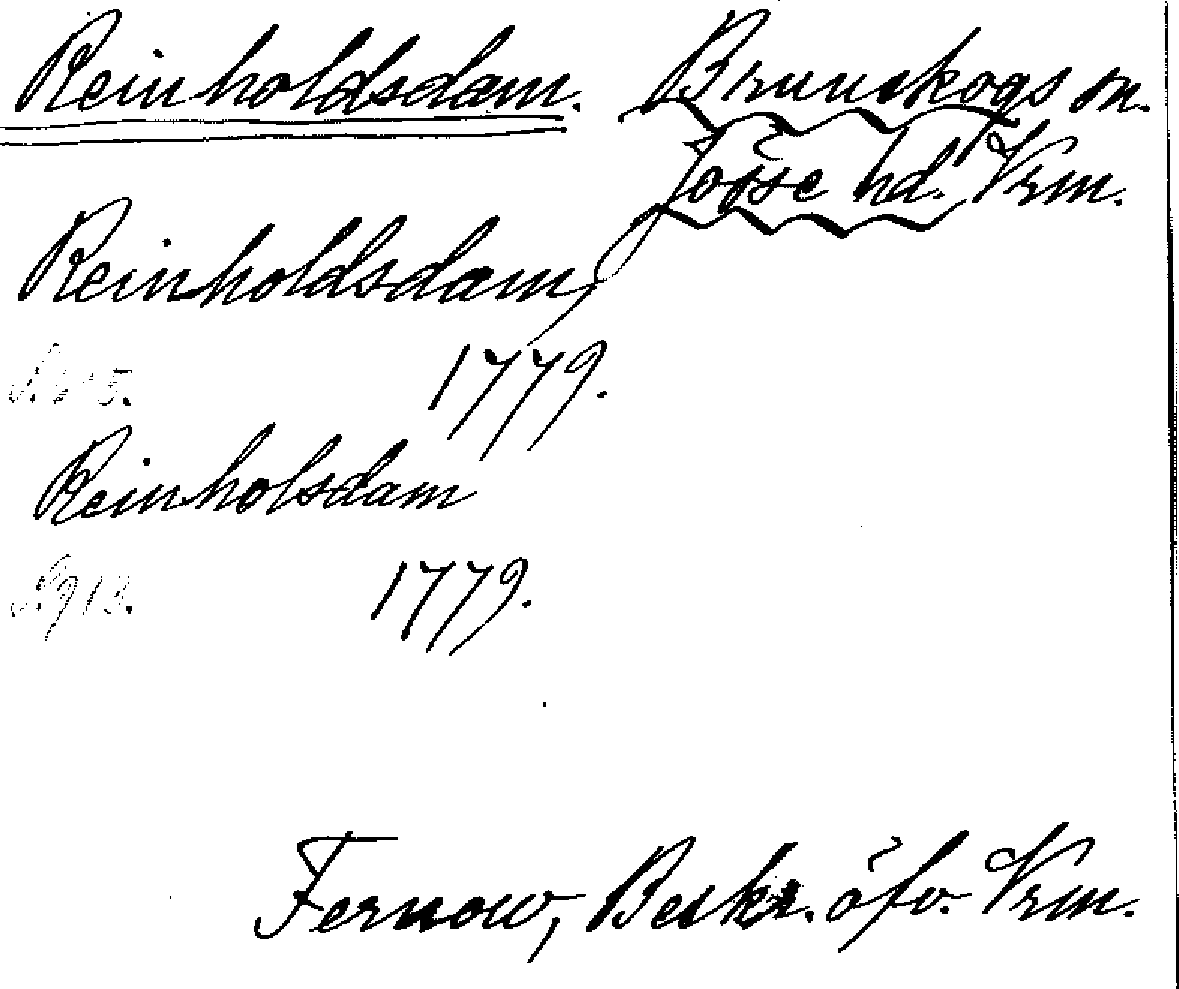 Reinholdsdam. Brunskogs sn.
Jösse hd. Vrm.
Reinholdsdam,
1779.
Reinholsdam
S. 913. 1779.
Fernow, Beskr. öfv. Vrm.